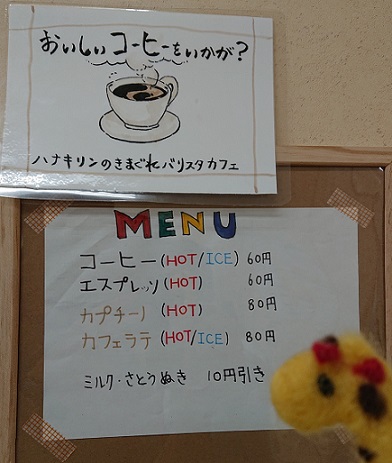 おいしいコーヒーをいかが?
ハナキリンのきまぐれバリスタカフェ
MENU
コーヒー(HOT/ICE) 60円
エスプレッソ(HOT) 60円
カプチーノ(HOT) 80円
カフェラテ(HOT/ICE) 80円
ミルク・さとうぬき 10円引き